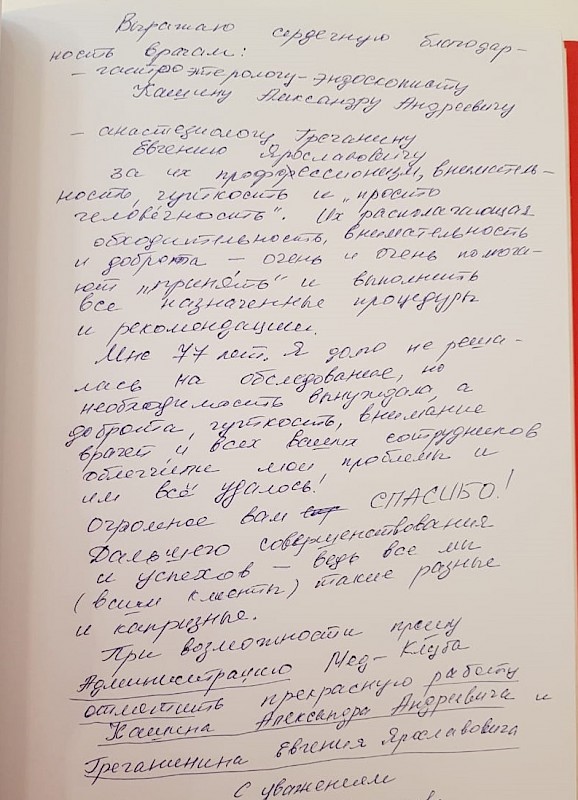 Выражаю сердечную благодар-
ность врачам:
- гастроэтерологу-эндоскописту
Кашину Александру Андреевичу
- анастезиологу Треганину
Евгению Ярославовичу
за их профессионизм, вниматель-
ность, чуткость и „просто
человечность“. Их располагающая
обходительность, внимательность
и доброта – очень и очень помога-
ют „принять“ и выполнить
все назначенные процедуры
и рекомондации.
Мне 77 лет. Я долго не реша-
лась на обследование, но
необходимость вынуждала, а
доброта, чуткость, внимание
врачей и всех ваших сотрудников
облегчили мои проблемы и
им всё удалось!
Огромное вам СПАСИБО!
Дальшего совершенствования
и успехов – ведь все мы
(ваши клиенты) такие разные
и капризные.
При возможности прошу
Администрацию Мед-Клуба
отметить прекрасную работу
Кашина Александра Андреевича и
Треганинина Евгения Ярославовича
С уважением